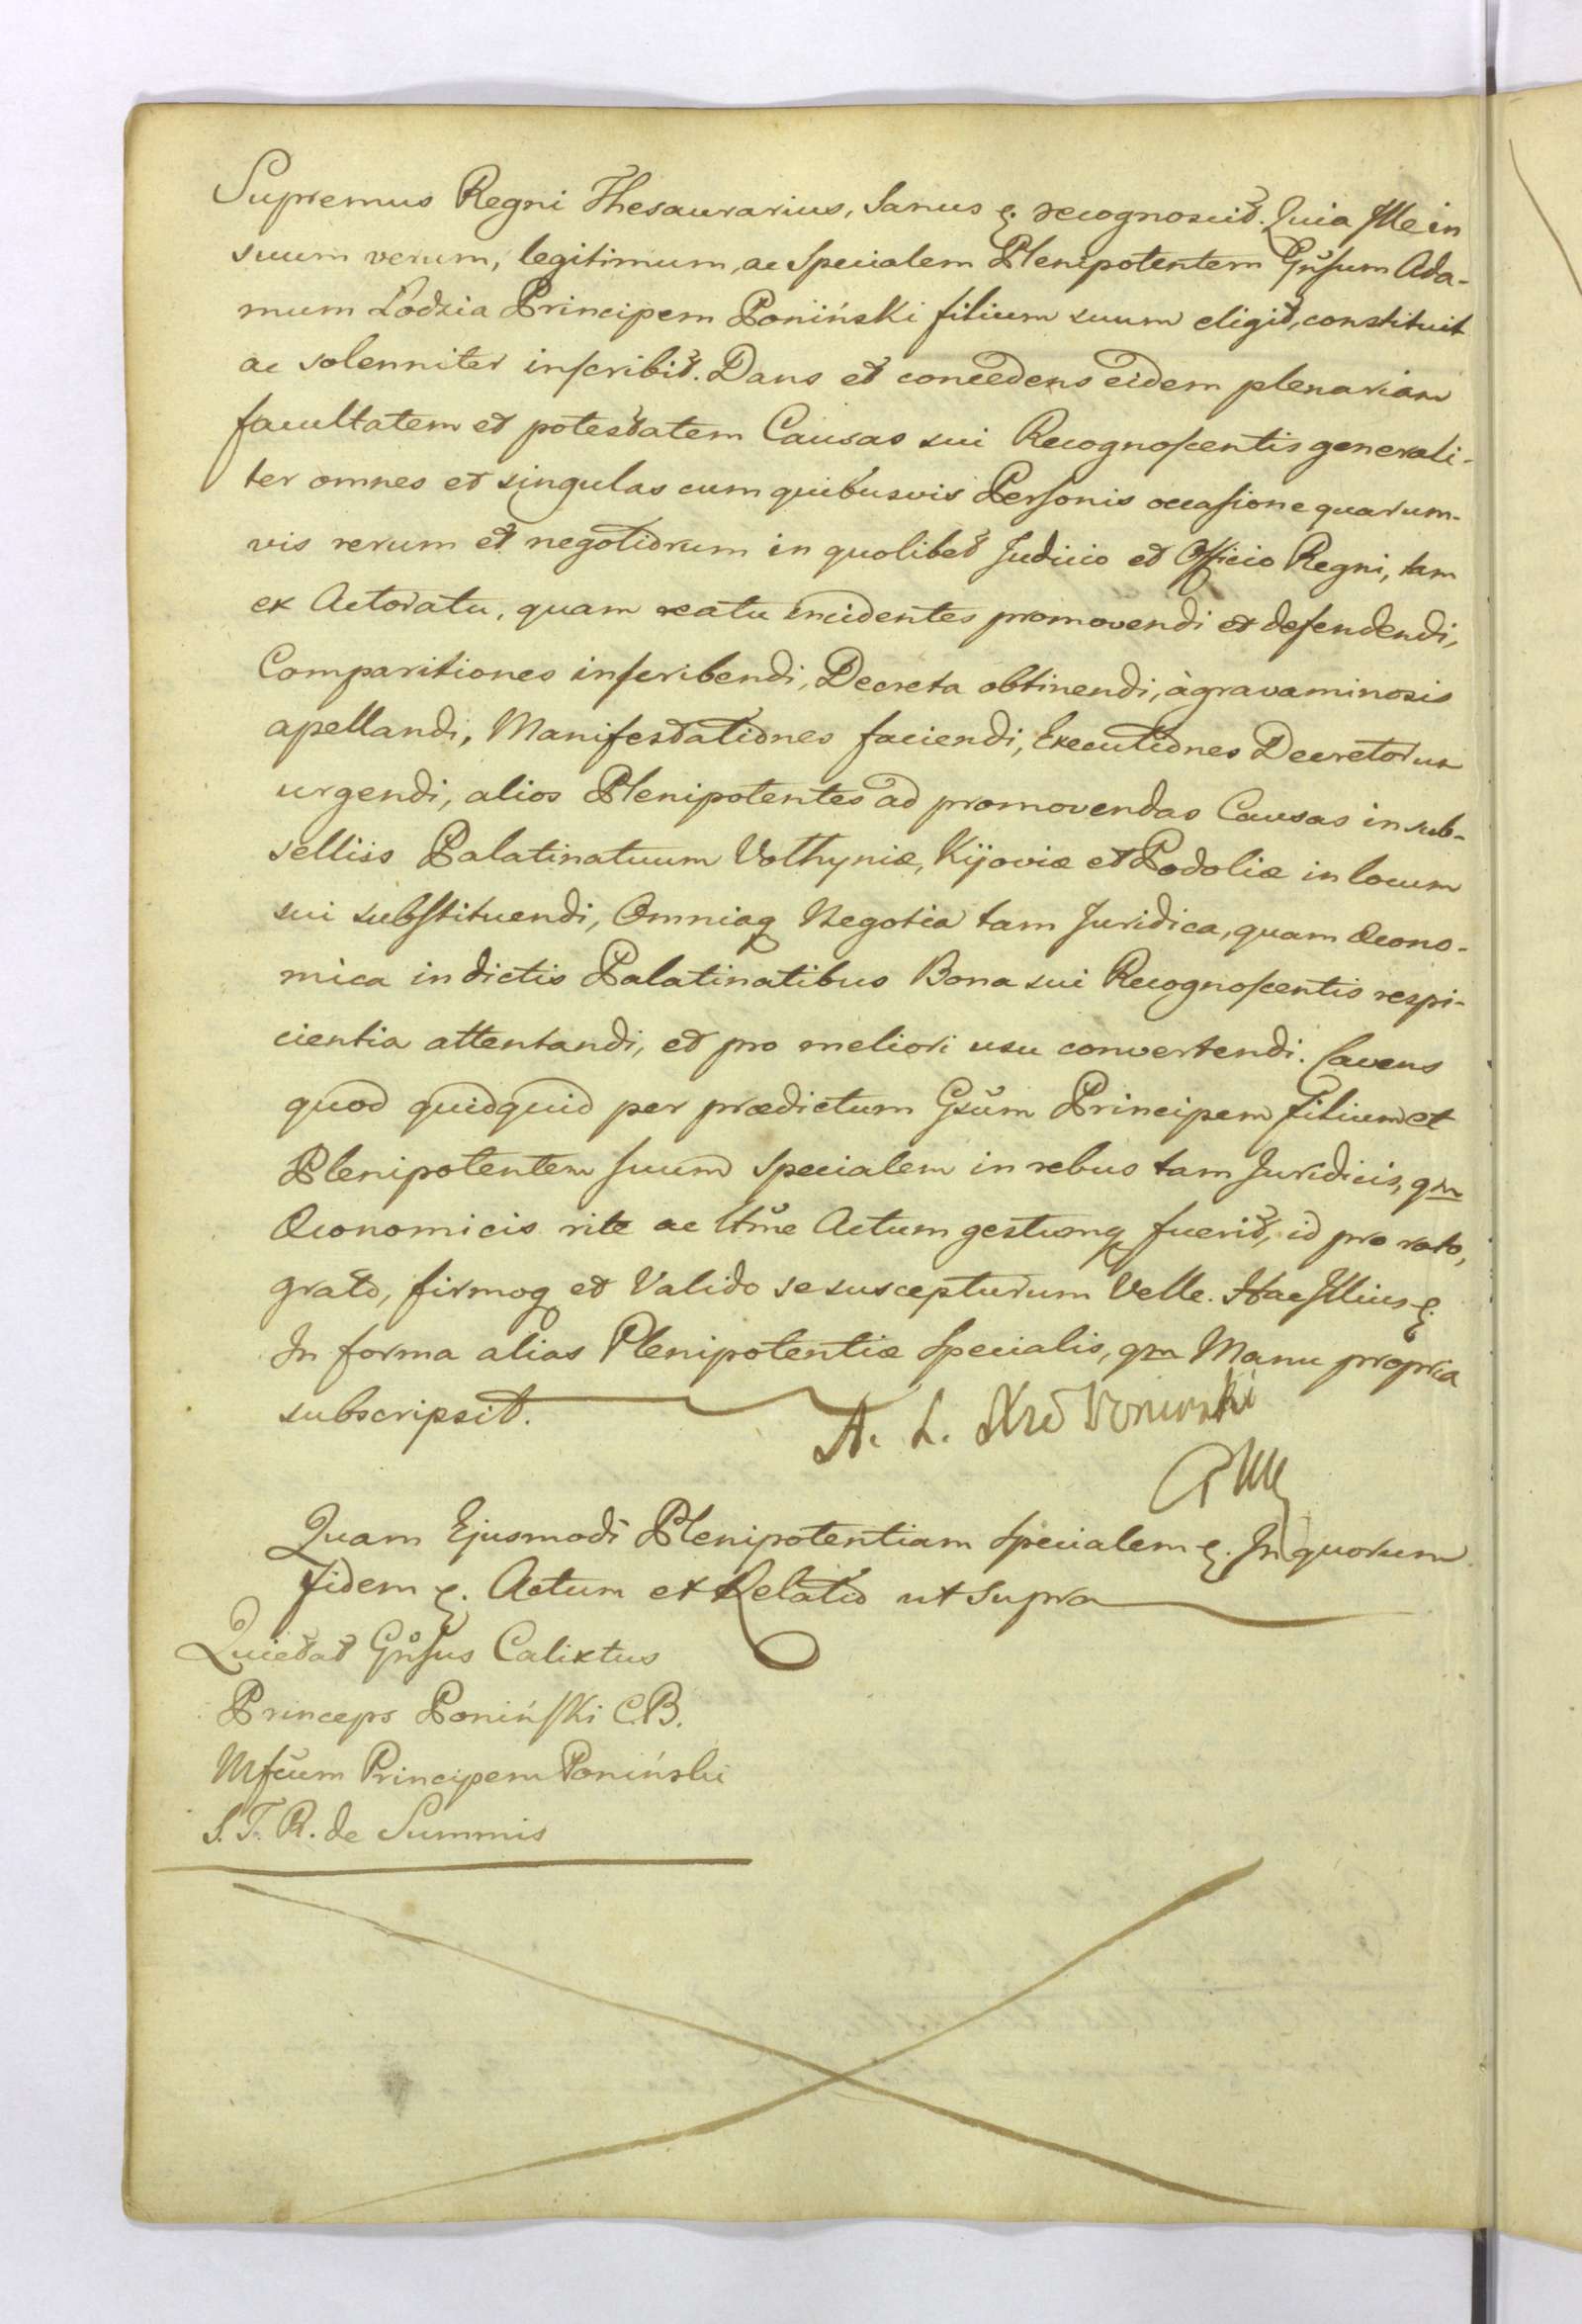 Supremus Regni Thesaurarius, Sanus &. recognoscit. Quia Ille in
suum verum, legitimum, ac Specialem Plenipotentem Gnsum Ada-
mum Lodzia Principem Poniński filium suum eligit, constituit
ac solenniter inscribit. Dans et concedens eidem plenariam
facultatem et potestatem Causas sui Recognoscentis generali-
ter omnes et singulas cum quibusvis Personis occasione quarum-
vis rerum et negotiorum in quolibet Judicio et Officio Regni, tam
ex Actoratu, quam reatu incidentes promovendi et defendendi,
Comparitiones inscribendi, Decreta obtinendi, à gravaminosis
apellandi, Manifestationes faciendi, Executiones Decretorum
urgendi, alios Plenipotentes ad promovendas Causas in sub-
selliis Palatinatuum Volhyniæ, Kijoviæ et Podoliæ in locum
sui substituendi, Omniaq Negotia tam Juridica, quam Œcono-
mica in dictis Palatinatibus Bona sui Recognoscentis respi-
cientia attentandi, et pro meliori usu convertendi. Cavens
quod quidquid per prædictum Gsum Principem filium et
Plenipotentem suum specialem in rebus tam Juridicis, qm
Œconomicis rite ac ltme Actum gestumq fuerit, id pro rato,
grato, firmoq et Valido se suscepturum Velle. Hac Illius &.
In forma alias Plenipotentiæ Specialis, qm Manu propria
subscripsit.
A. L. Poninski
Quam Ejusmodi Plenipotentiam Specialem &. In quorum
fidem &. Actum et Relatio ut Supra
Quietat Gnsus Calixtus
Princeps Poniński C.B.
Mfcum Principem Poniński
S. T. R. de Summis